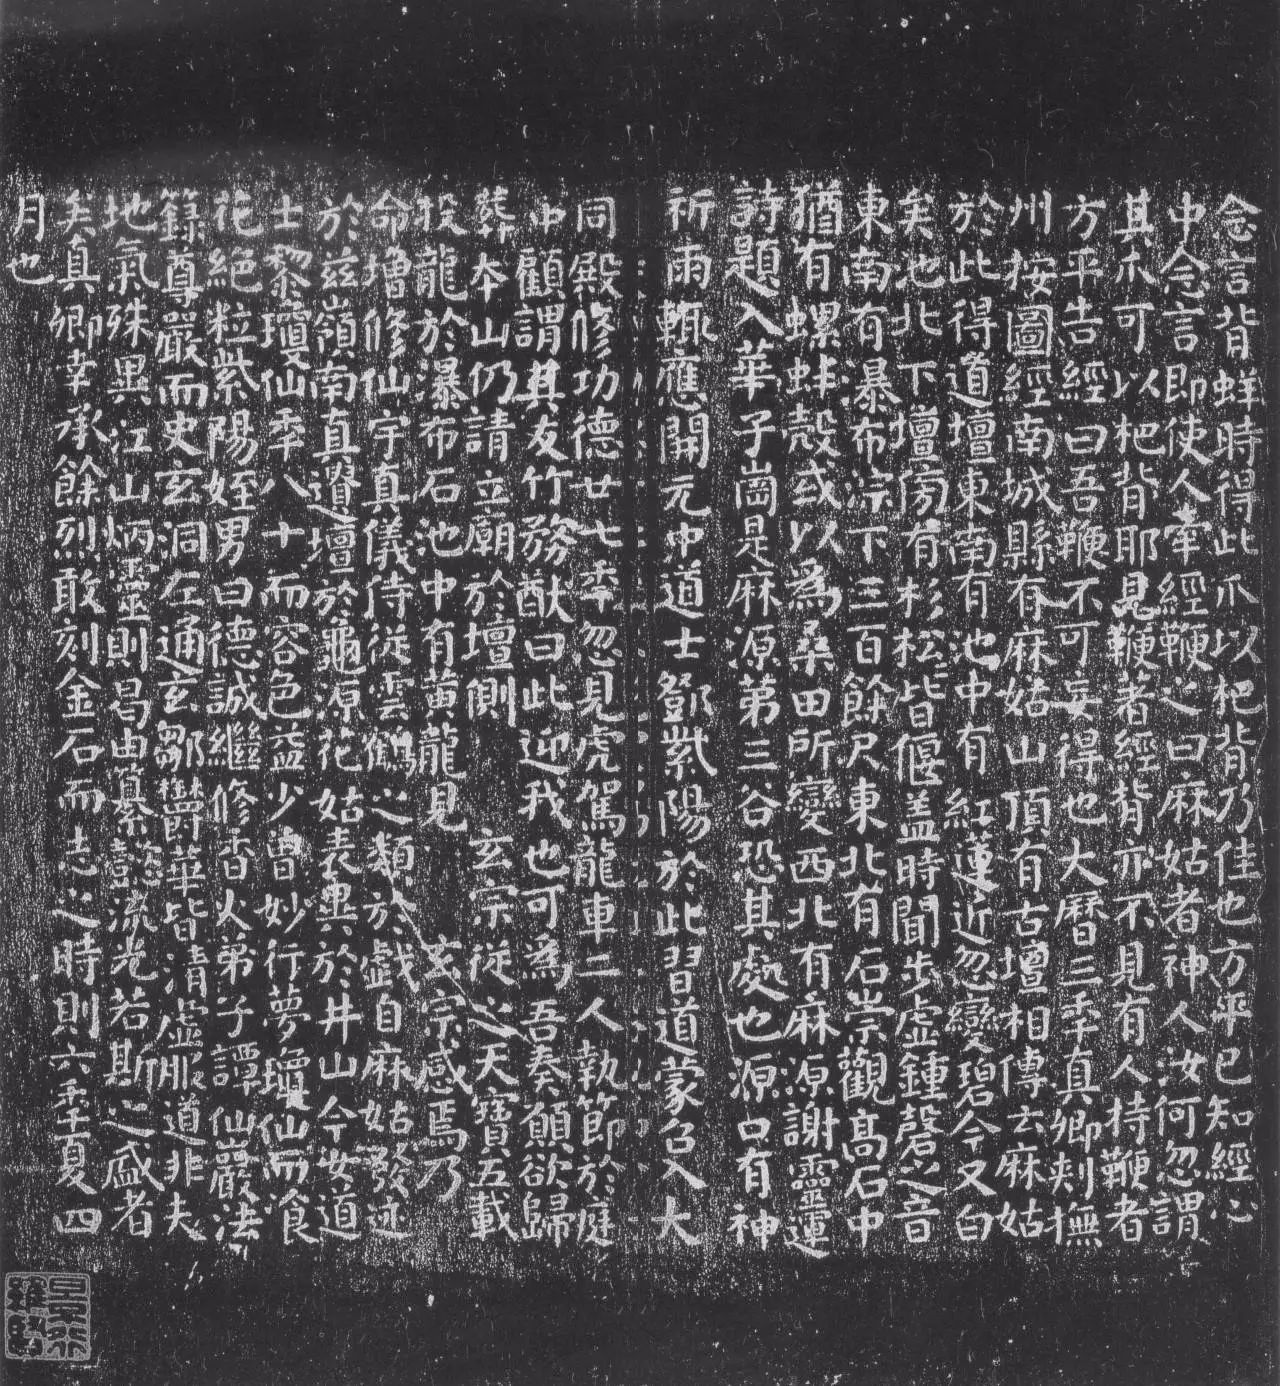 念言背蛘時得此爪以杷背乃佳也方平已知經心
中念言即使人牽經鞭之曰麻姑者神人汝何忽謂
其爪可以杷背耶見鞭著經背亦不見有人持鞭者
方平告經曰吾鞭不可妄得也大曆三年真卿刺撫
州按圖經南城縣有麻姑山頂有古壇相傳云麻姑
於此得道壇東南有池中有紅蓮近忽變碧今又白
矣池北下壇傍有杉松松皆偃盖時聞步虛鍾磬之音
東南有瀑布淙下三百餘尺東北有石崇觀高石中
猶有螺蚌殼或以為桑田所變西北有麻源謝靈運
詩題入華子崗是麻源第三谷恐其處也源口有神
祈雨輒應開元中道士鄧紫陽於此習道蒙召入大
同殿修功德廿七年忽見虎駕龍車二人執節於庭
中顧謂其友竹務猷曰此迎我也可為吾奏願欲歸
葬本山仍請立廟於壇側 玄宗從之天寶五載
投龍於瀑布石池中有黃龍見 玄宗感焉乃
命增修仙宇真儀侍從雲鶴之類於戲自麻姑發迹
於茲嶺南真遺壇於龜源花姑表異於井山今女道
士黎瓊仙年八十而容色益少曾妙行夢瓊仙而飡
花絕粒紫陽姪男曰德誠繼修香火弟子譚仙巖法
籙尊嚴而史玄洞左通玄鄒鬱華皆清虛服道非夫
地氣殊異江山炳靈則曷由纂懿流光若斯之盛者
矣真卿幸承餘烈敢刻金石而志之時則六年夏四
月也